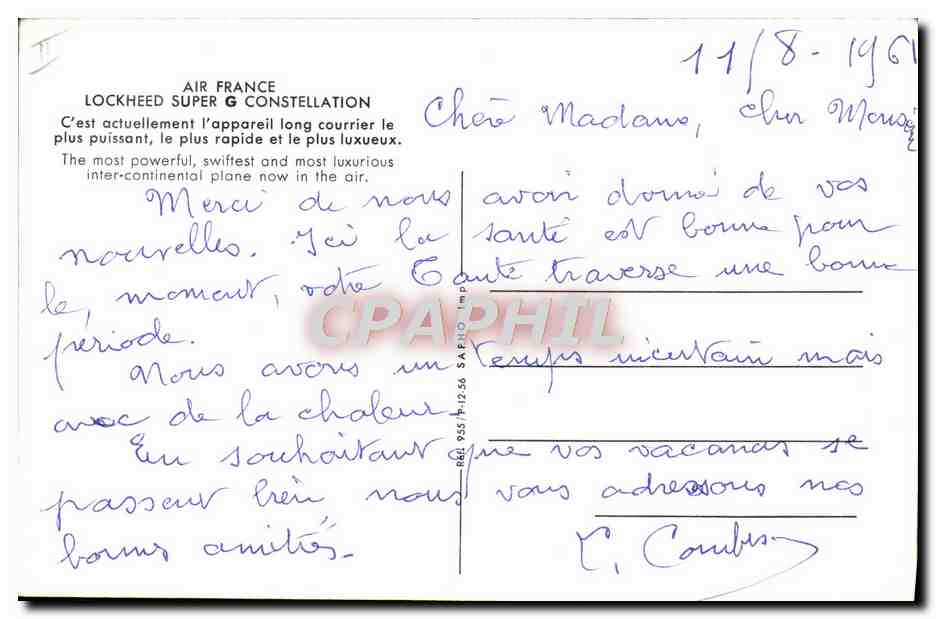 II
11/8-1961
AIR FRANCE
LOCKHEED SUPER G CONSTELLATION
C'est actuellement l'appareil long courrier le
plus puissant, le plus rapide et le plus luxueux.
The most powerful, swiftest and most luxurious
inter-continental plane now in the air.
Chère Madame, cher Monsieur
Merci de nous avoir donné de vos
nouvelles. Ici la santé est bonne pour
le, moment, votre Tante traverse une bonne
période.
Nous avons un temps incertain mais
avec de la chaleur-
En souhaitant que vos vacances se
passent bien, nous vous adressons nos
bonnes amitiés-
Réf. 955/P-12-56 SAPHO Imp
CPAPHIL